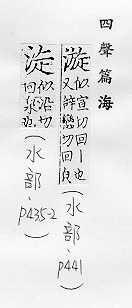 四聲篇海
漩 似宣切回丨也
又辝戀切回泉
(水部、p441)
似沿切
回泉也
(水部、p435-2)